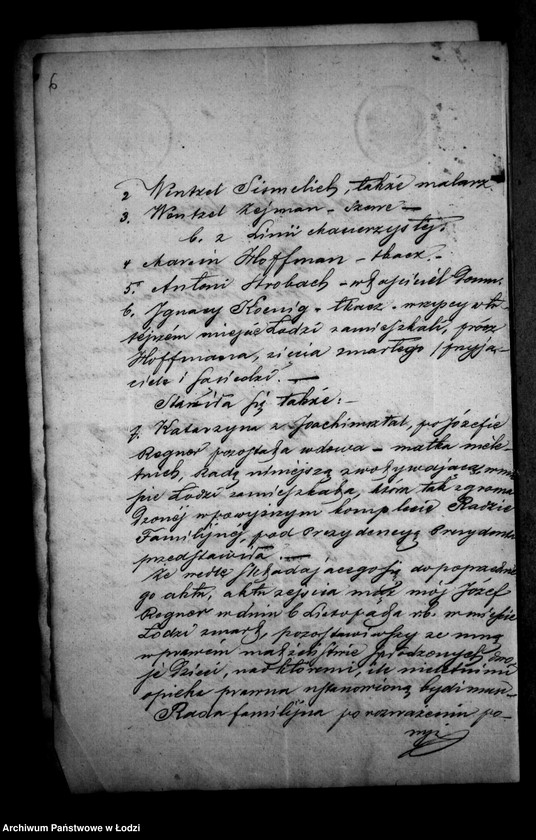 6
2 Wentzel Simelich, także malarz.
3. Wentzel Zejman - szewc —
b. z Linii Macierzystej.
4 Marcin Hoffman - tkacz -
5. Antoni Strobach - właściciel domu.
6. Ignacy Koenig - tkacz - wszyscy w tu-
tejszém mieście Łodzi zamieszkali, prócz
Hoffmana, zięcia zmarłego / przyja-
ciele i sąsiedzi. —
Stawiła się także: -
7. Katarzyna z Joachimstal, po Józefie
Regner pozostała wdowa - matka nielet-
tnich, Radę niniejszą zwoływająca, w mie
ście Łodzi zamieszkała, która tak zgroma
dzonéj w powyższym komplecie Radzie
Familijnéj, pod Prezydencyą Prezydenta
przedstawiła. —
Że wedle składającego się do poprzednie
go aktu, aktu zejścia mąż mój Józef
Regner w dniu 6 Listopada rb. w mieście
Łodzi zmarł, pozostawiwszy ze mną
w prawem małżeństwie spłodzonych dwo
je dzieci, nad któremi, ile nieletniemi
opieka prawna ustanowioną być winna -
Rada familijna po rozważeniu po-
wyż
Archiwum Państwowe w Łodzi